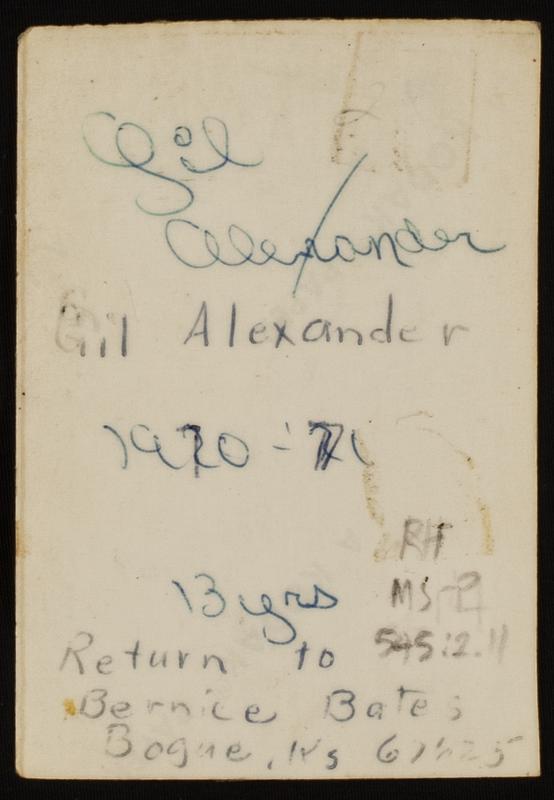 Gil
Alexander
Gil Alexander
1970-71
13 yrs
RH
MS-P
545:2.11
Return to
Bernice Bates
Bogue, Ks 67625